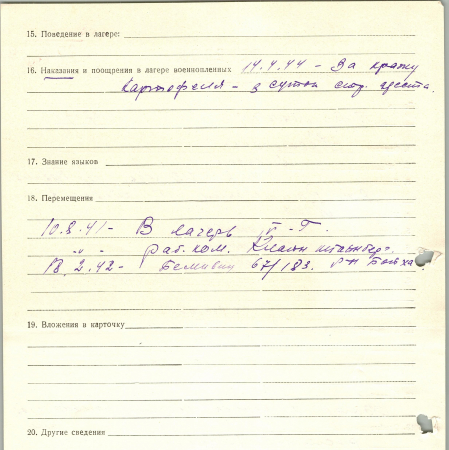 15. Поведение в лагере:
16. Наказания и поощрения в лагере военнопленных 14.4.44 - За кражу
картофеля - 3 суток стр. ареста.
17. Знание языков
18. Перемещения
10.8.41 - В лагерь
раб. ком.
18.2.42 - 67/183.
19. Вложения в карточку
20. Другие сведения